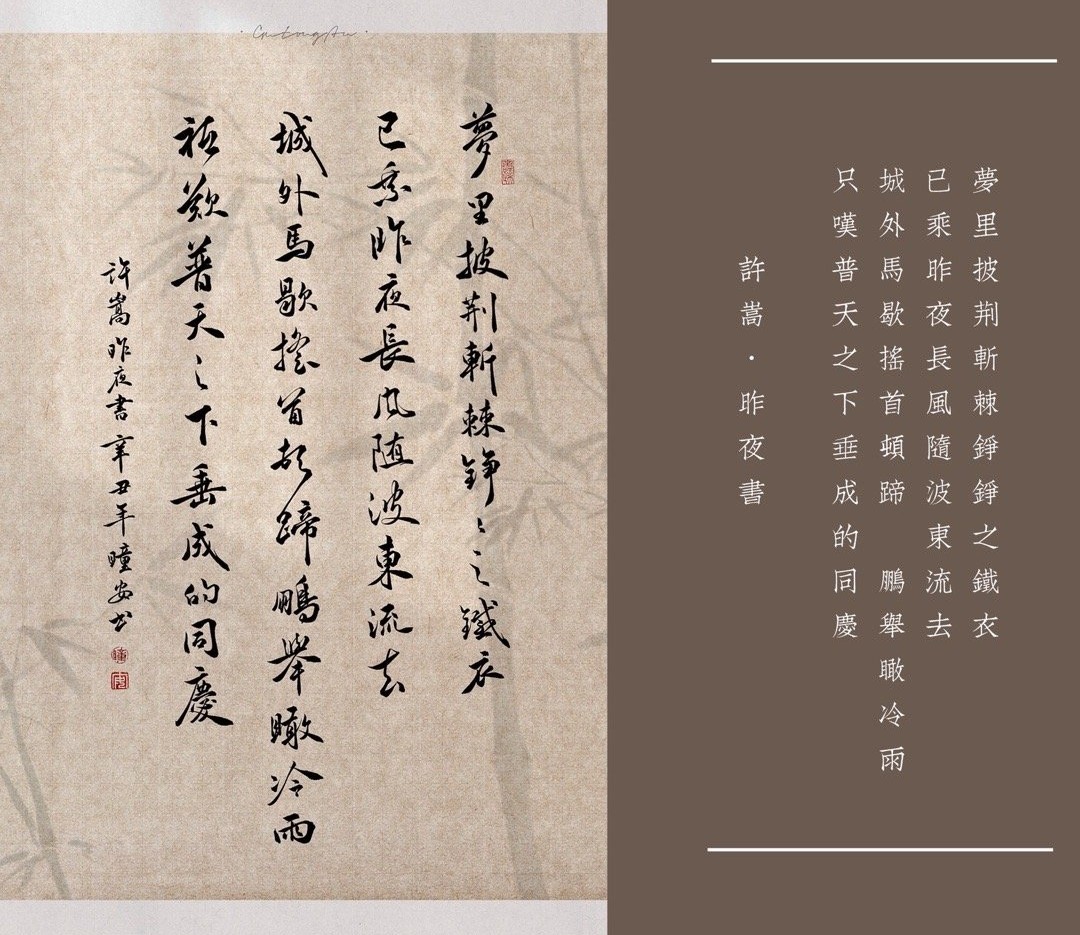 夢里披荆斬棘錚〻之鐵衣
已乘昨夜長風随波東流去
城外馬歇搖首頓蹄鵬舉瞰冷雨
祗歎普天之下垂成的同慶
許嵩昨夜書 辛丑年瞳安书
夢里披荆斬棘錚錚之鐵衣
已乘昨夜長風隨波東流去
城外馬歇搖首頓蹄 鵬舉瞰冷雨
只嘆普天之下垂成的同慶
許嵩·昨夜書